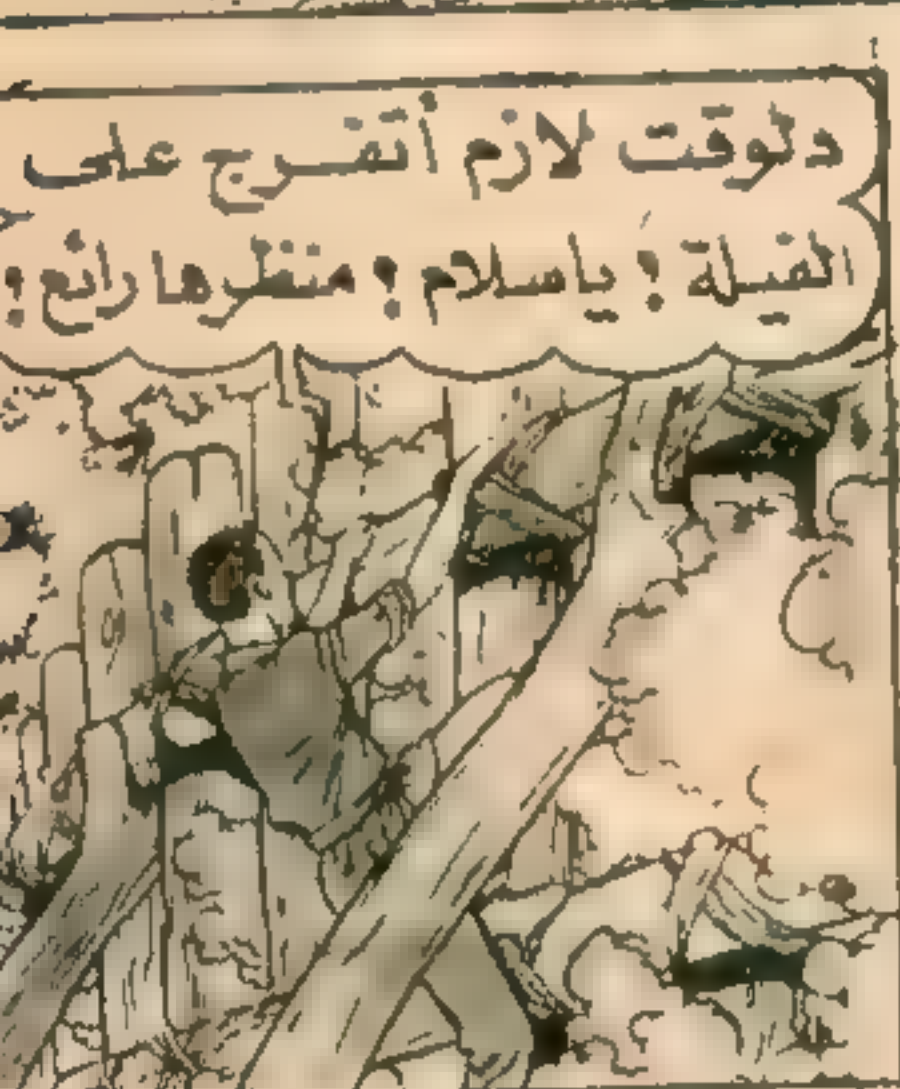 دلوقت لازم أتفرج على
الفيلة ! ياسلام ! منظرها رائع !